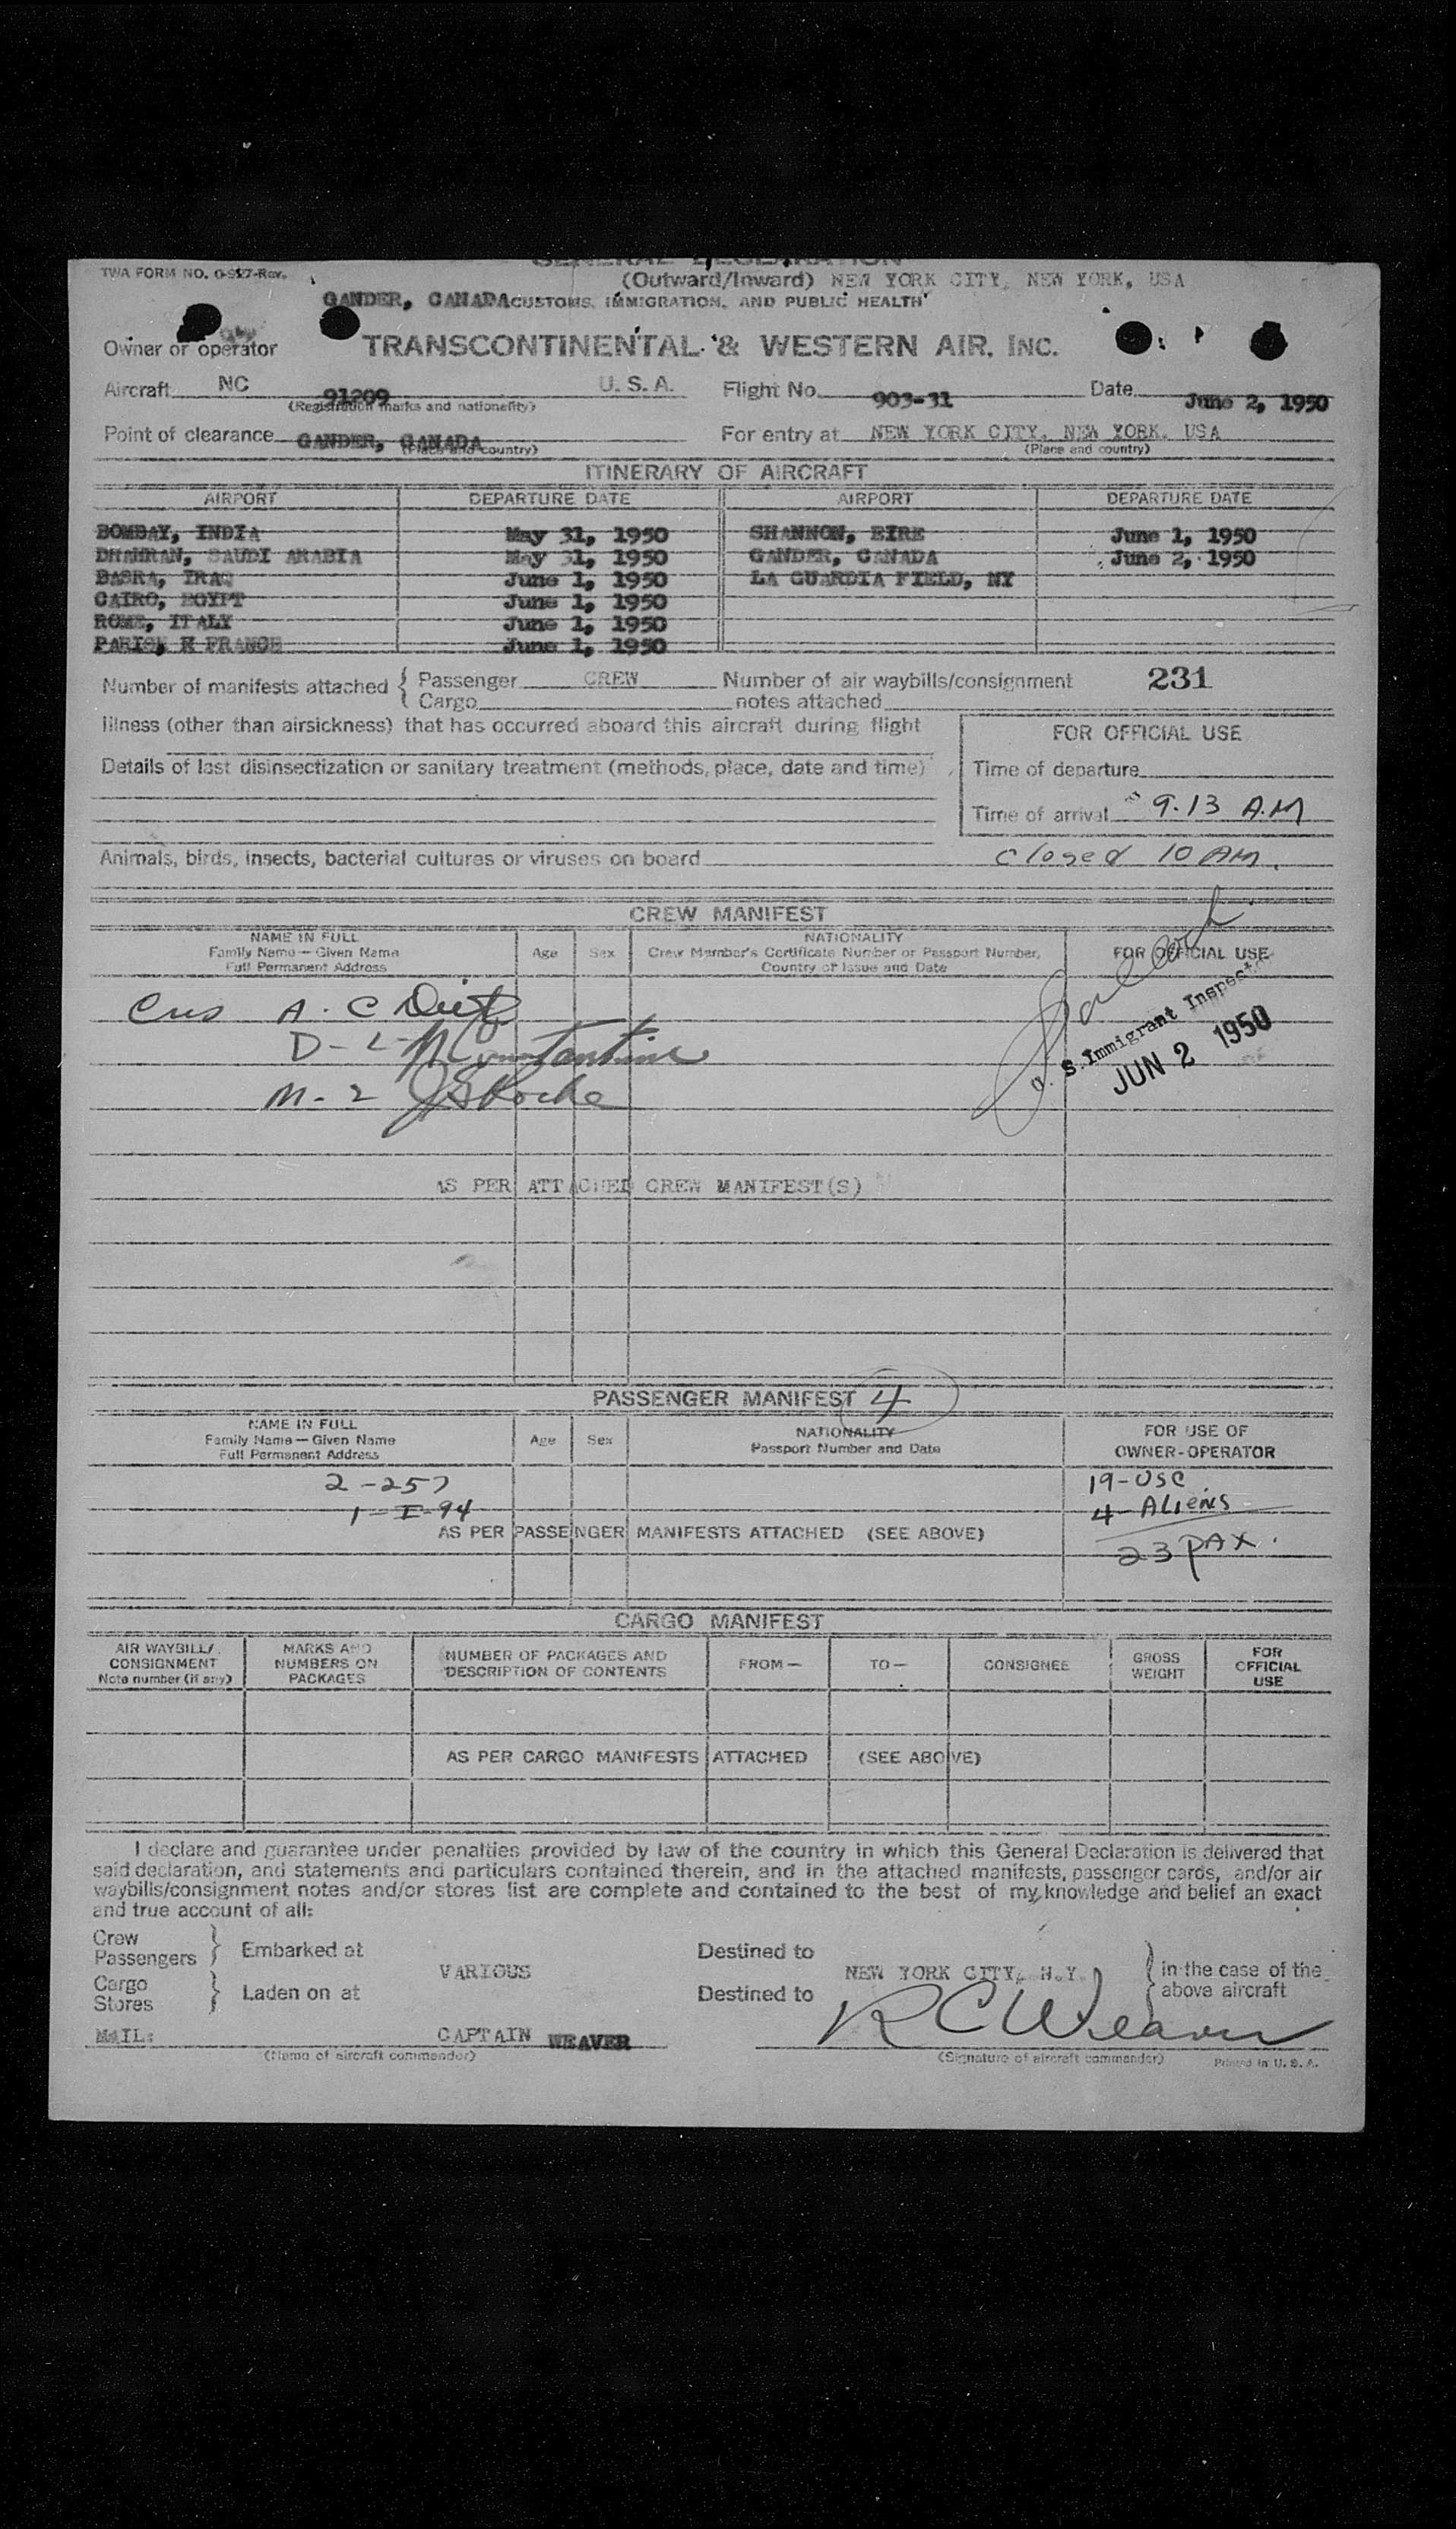 TWA FORM NO. O-927-Rev.
GENERAL DECLARATION
(Outward/Inward) NEW YORK CITY, NEW YORK, USA
GANDER, CANADA CUSTOMS, IMMIGRATION, AND PUBLIC HEALTH
Owner or operator TRANSCONTINENTAL & WESTERN AIR, INC.
Aircraft NC 91209 U. S. A. Flight No. 903-31 Date June 2, 1950
(Registration marks and nationality)
Point of clearance GANDER, CANADA For entry at NEW YORK CITY, NEW YORK, USA
(Place and country) (Place and country)
ITINERARY OF AIRCRAFT
AIRPORT DEPARTURE DATE AIRPORT DEPARTURE DATE
BOMBAY, INDIA May 31, 1950 SHANNON, EIRE June 1, 1950
DHAHRAN, SAUDI ARABIA May 31, 1950 GANDER, CANADA June 2, 1950
BASRA, IRAQ June 1, 1950 LA GUARDIA FIELD, NY
CAIRO, EGYPT June 1, 1950
ROME, ITALY June 1, 1950
PARIS, FRANCE June 1, 1950
Number of manifests attached { Passenger CREW Number of air waybills/consignment 231
Cargo notes attached
Illness (other than airsickness) that has occurred aboard this aircraft during flight
FOR OFFICIAL USE
Details of last disinsectization or sanitary treatment (methods, place, date and time)
Time of departure
Time of arrival 9.13 A.M
Animals, birds, insects, bacterial cultures or viruses on board closed 10 AM.
CREW MANIFEST
NAME IN FULL NATIONALITY
Family Name—Given Name Age Sex Crew Member's Certificate Number or Passport Number, FOR OFFICIAL USE
Full Permanent Address Country of Issue and Date
Cus A. C Dietz
D-2
M-2 Roche
U. S. Immigrant Inspector
JUN 2 1950
AS PER ATTACHED CREW MANIFEST(S)
PASSENGER MANIFEST 4
NAME IN FULL NATIONALITY FOR USE OF
Family Name—Given Name Age Sex Passport Number and Date OWNER-OPERATOR
Full Permanent Address
2-257 19-USC
1-I-94 4-Aliens
AS PER PASSENGER MANIFESTS ATTACHED (SEE ABOVE)
23 PAX.
CARGO MANIFEST
AIR WAYBILL/ MARKS AND NUMBER OF PACKAGES AND FROM— TO— CONSIGNEE GROSS FOR
CONSIGNMENT NUMBERS ON DESCRIPTION OF CONTENTS WEIGHT OFFICIAL
Note number (if any) PACKAGES USE
AS PER CARGO MANIFESTS ATTACHED (SEE ABOVE)
I declare and guarantee under penalties provided by law of the country in which this General Declaration is delivered that
said declaration, and statements and particulars contained therein, and in the attached manifests, passenger cards, and/or air
waybills/consignment notes and/or stores list are complete and contained to the best of my knowledge and belief an exact
and true account of all:
Crew
Passengers } Embarked at VARIOUS Destined to NEW YORK CITY, N.Y. } in the case of the
Cargo
Stores } Laden on at Destined to above aircraft
MAIL: CAPTAIN WEAVER R C Weaver
(Name of aircraft commander) (Signature of aircraft commander) Printed in U. S. A.